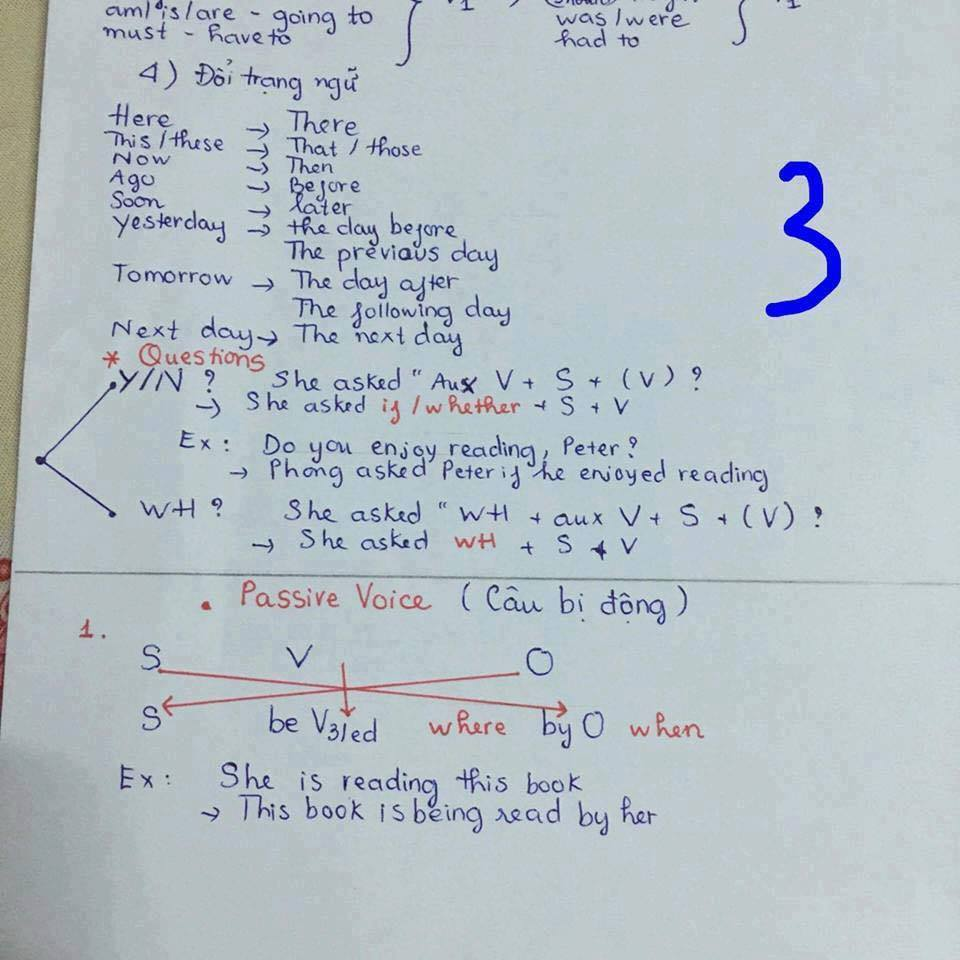 am/is/are - going to was/were
must - have to had to
4) Đổi trạng ngữ
Here → There
This/these → That / those
Now → Then
Ago → Before
Soon → later
yesterday → the day before
The previous day
Tomorrow → The day after
The following day
Next day → The next day
3
* Questions
Y/N ? She asked " Aux V + S + (V) ?
→ She asked if /whether + S + V
Ex : Do you enjoy reading, Peter?
→ Phong asked Peter if he enjoyed reading
WH ? She asked " WH + aux V + S + (V) ?
→ She asked WH + S + V
• Passive Voice ( Câu bị động )
1.
S V O
S be V3/ed where by O when
Ex : She is reading this book
→ This book is being read by her